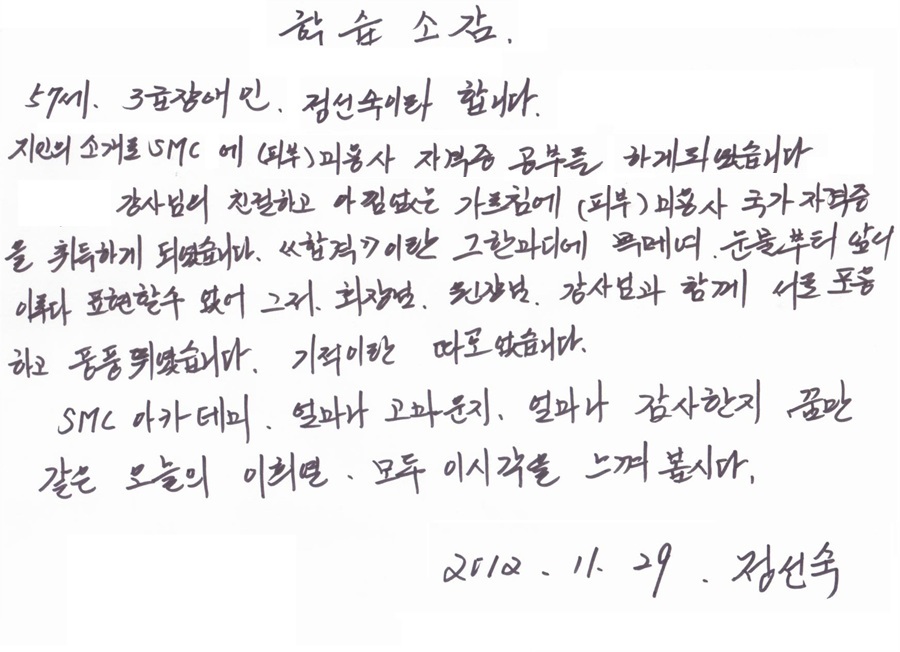 학습 소감.
57세. 3급장애인. 정선숙이라 합니다.
지인의 소개로 SMC에 (피부)미용사 자격증 공부를 하게되였습니다
강사님의 친절하고 아낌없는 가르침에 (피부)미용사 국가자격증
을 취득하게 되였습니다. 《합격》이란 그한마디에 목메여. 눈물부터 앞서
이루다 표현할수 없어 그저. 회장님. 원장님. 강사님과 함께 서로 포옹
하고 퐁퐁 뛰였습니다. 기적이란 따로 없습니다.
SMC 아카데미. 얼마나 고마운지. 얼마나 감사한지 꿈만
같은 오늘의 이희열. 모두 이시각을 느껴 봅시다.
2012. 11. 29. 정선숙